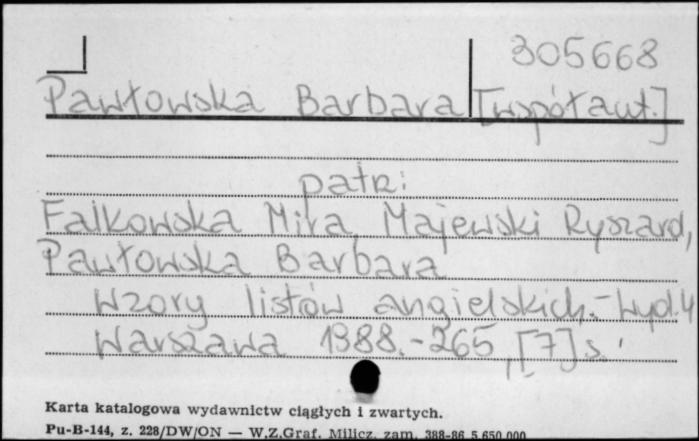 305668
Pawłowska Barbara [współaut.]
patrz:
Falkowska Mira, Majewski Ryszard,
Pawłowska Barbara
Wzory listów angielskich. - Wyd. 4
Warszawa 1988. - 265, [7] s.
Karta katalogowa wydawnictw ciągłych i zwartych.
Pu-B-144, z. 228/DW/ON — W.Z.Graf. Milicz, zam. 388-86 5.650.000